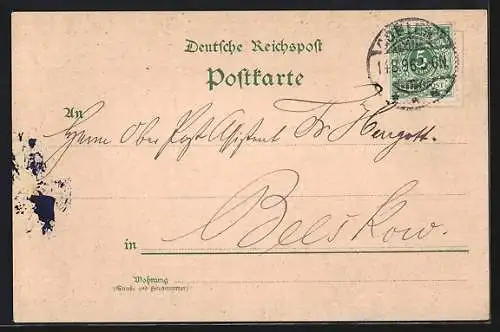 Deutsche Reichspost
Postkarte
14.8.96. 5-6N.
5
An
Herrn Ober Post Assistent Fr. Hengott.
in Beeskow.
Wohnung
(Straße und Hausnummer)